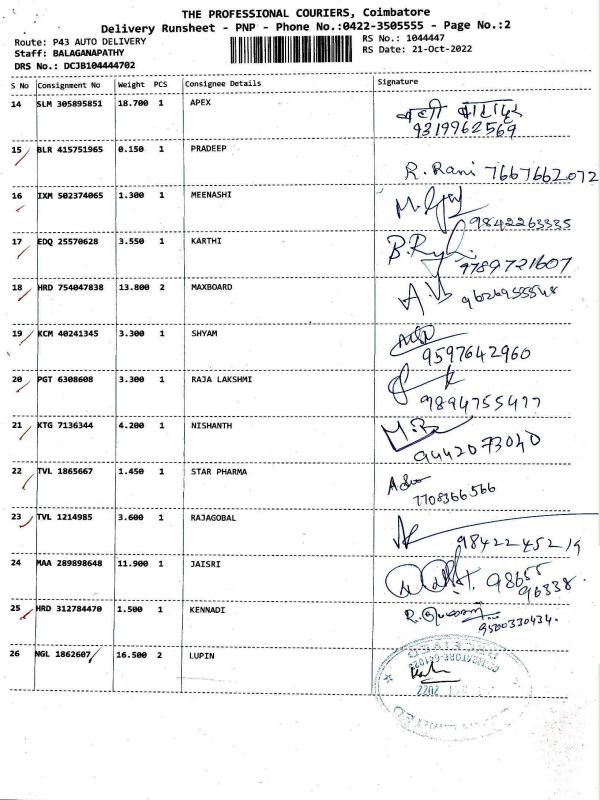 THE PROFESSIONAL COURIERS, Coimbatore
Delivery Runsheet - PNP - Phone No.:0422-3505555 - Page No.:2
Route: P43 AUTO DELIVERY
Staff: BALAGANAPATHY
DRS No.: DCJB104444702
RS No.: 1044447
RS Date: 21-Oct-2022
S No Consignment No Weight PCS Consignee Details Signature
14 SLM 305895851 18.700 1 APEX
9319962569
15 BLR 415751965 0.150 1 PRADEEP
R. Rani 7667662072
16 IXM 502374065 1.300 1 MEENASHI
9842263335
17 EDQ 25570628 3.550 1 KARTHI
9789721607
18 HRD 754047838 13.800 2 MAXBOARD
19 KCM 40241345 3.300 1 SHYAM
9597642960
20 PGT 6308608 3.300 1 RAJA LAKSHMI
9894755477
21 KTG 7136344 4.200 1 NISHANTH
9442073040
22 TVL 1865667 1.450 1 STAR PHARMA
7708366566
23 TVL 1214985 3.600 1 RAJAGOBAL
9842245219
24 MAA 289898648 11.900 1 JAISRI
98655
96338
25 HRD 312784470 1.500 1 KENNADI
9500330434.
26 NGL 1862607 16.500 2 LUPIN
RECEIVED
COIMBATORE-641023
2022